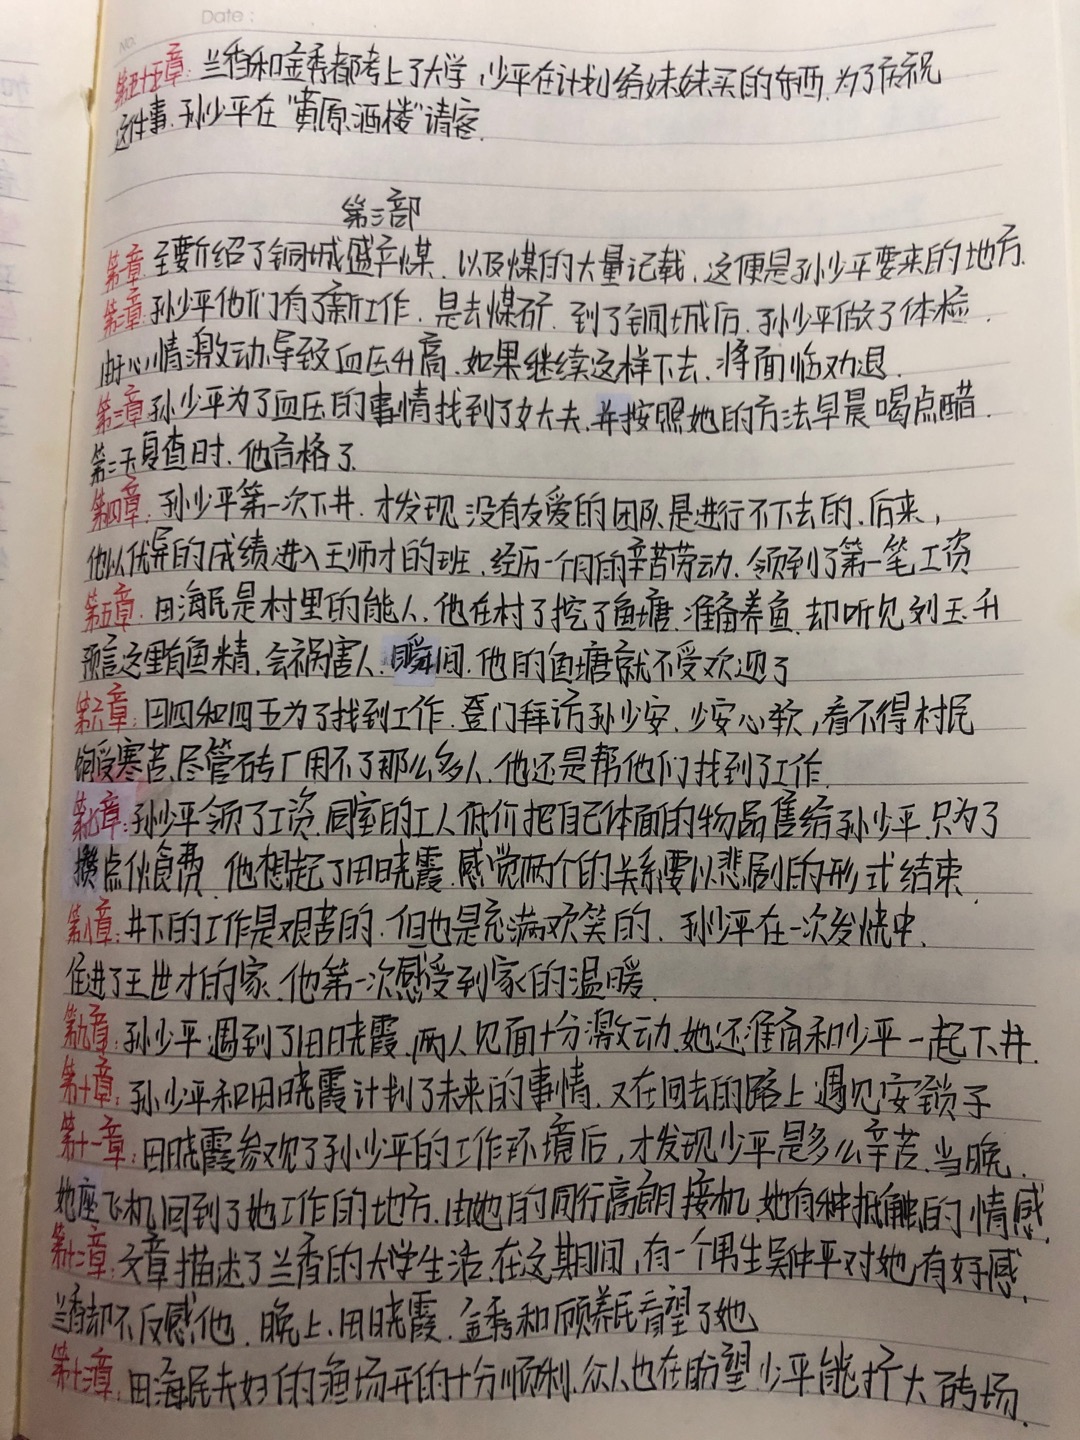 Date:
NO.
第五十五章:兰香和金秀都考上了大学,少平在计划给妹妹买的东西.为了庆祝
这件事.孙少平在"黄原酒楼"请客.
第三部
第一章:主要介绍了铜城盛产煤.以及煤的大量记载.这便是孙少平要来的地方.
第二章:孙少平他们有了新工作.是去煤矿.到了铜城后.孙少平做了体检.
由于心情激动.导致血压升高.如果继续这样下去.将面临劝退.
第三章:孙少平为了血压的事情找到了女大夫.并按照她的方法早晨喝点醋.
第二天复查时.他合格了.
第四章:孙少平第一次下井.才发现没有友爱的团队是进行不下去的.后来,
他以优异的成绩进入王师才的班.经历一个月的辛苦劳动.领到了第一笔工资
第五章:田海民是村里的能人.他在村了挖了鱼塘.准备养鱼.却听见刘玉升
预言这里有鱼精.会祸害人.瞬间.他的鱼塘就不受欢迎了
第六章:田四和四五为了找到工作.登门拜访孙少安.少安心软,看不得村民
饱受寒苦.尽管砖厂用不了那么多人.他还是帮他们找到了工作.
第七章:孙少平领了工资.同室的工人低价把自己体面的物品售给孙少平.只为了
攒点伙食费.他想起了田晓霞.感觉两个的关系要以悲剧的形式结束.
第八章:井下的工作是艰苦的.但也是充满欢笑的.孙少平在一次发烧中.
住进了王世才的家.他第一次感受到家的温暖.
第九章:孙少平遇到了田晓霞.两人见面十分激动.她还准备和少平一起下井.
第十章:孙少平和田晓霞计划了未来的事情.又在回去的路上遇见安锁子
第十一章:田晓霞参观了孙少平的工作环境后,才发现少平是多么辛苦.当晚.
她座飞机回到了她工作的地方.由她的同行高朗接机.她有种抵触的情感.
第十二章:文章描述了兰香的大学生活.在这期间,有一个男生吴仲平对她有好感.
兰香却不反感他.晚上.田晓霞.金秀和顾养民看望了她
第十三章:田海民夫妇的渔场开的十分顺利.众人也在盼望少平能扩大砖场.